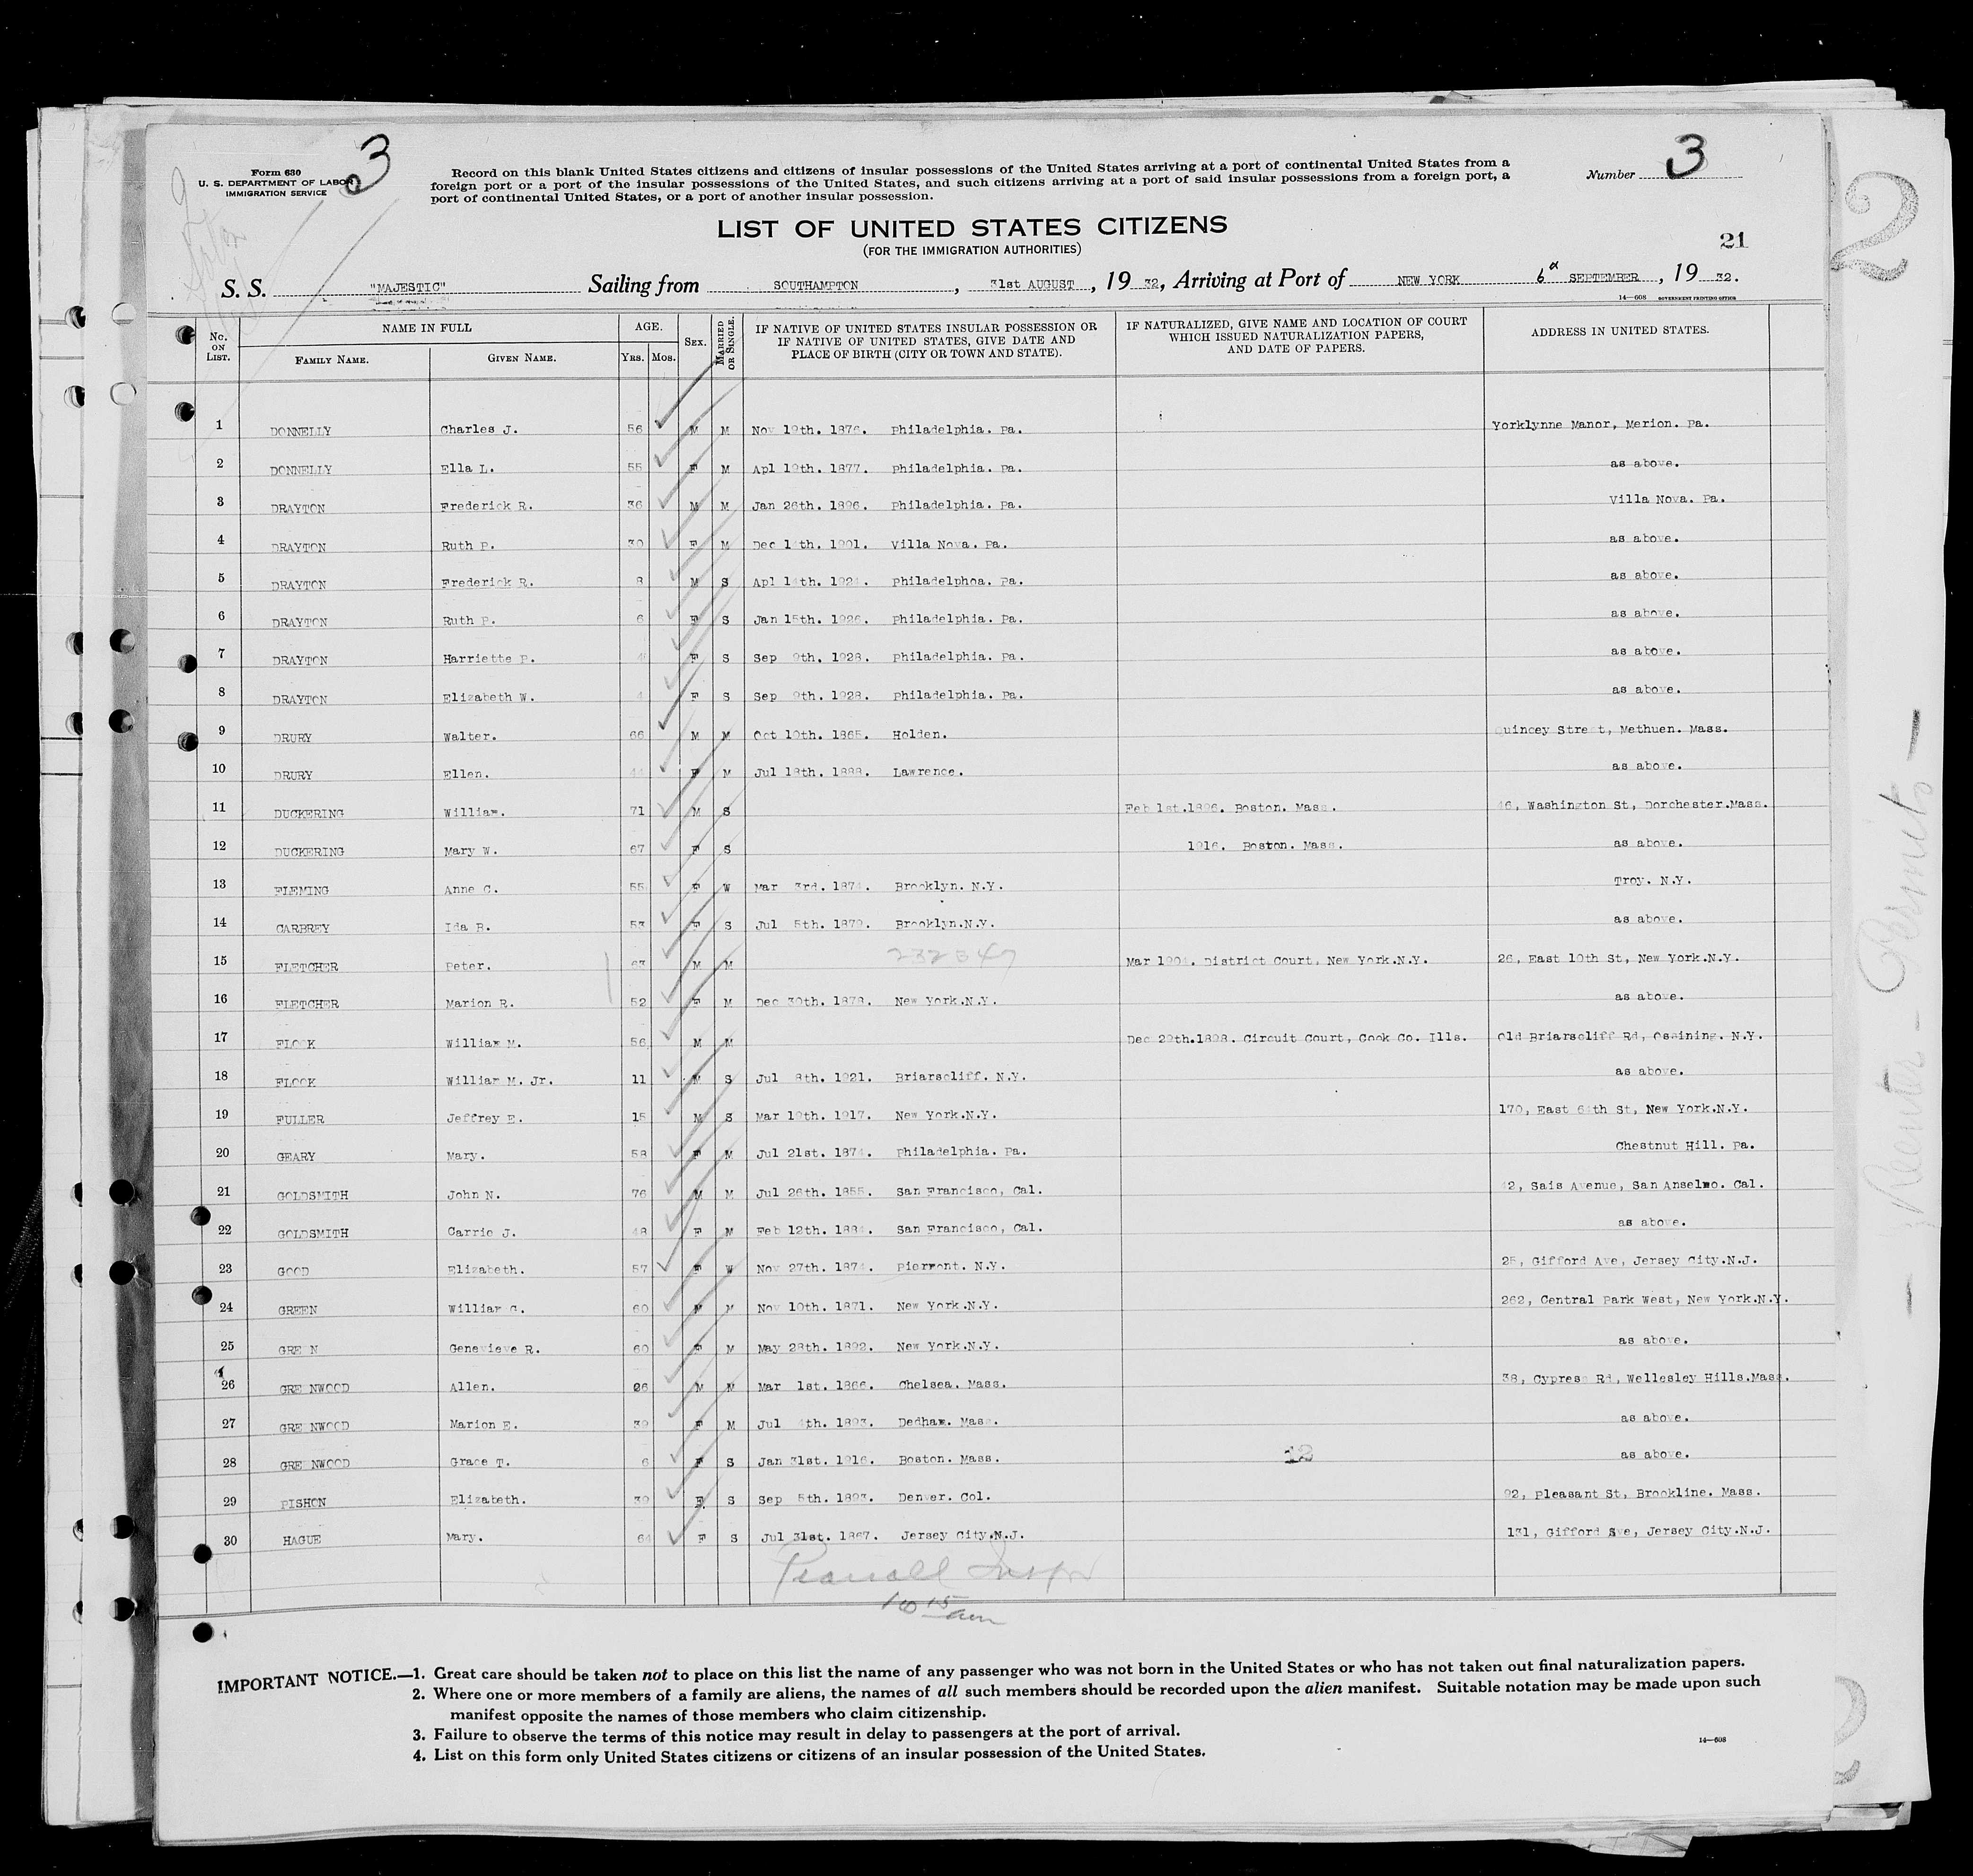 3
3
Form 630
U. S. DEPARTMENT OF LABOR
IMMIGRATION SERVICE
Record on this blank United States citizens and citizens of insular possessions of the United States arriving at a port of continental United States from a
foreign port or a port of the insular possessions of the United States, and such citizens arriving at a port of said insular possessions from a foreign port, a
port of continental United States, or a port of another insular possession.
Number
2
LIST OF UNITED STATES CITIZENS
(FOR THE IMMIGRATION AUTHORITIES)
21
S. S. "MAJESTIC" Sailing from SOUTHAMPTON, 31st AUGUST, 1932, Arriving at Port of NEW YORK 6 SEPTEMBER, 1932.
14—608 GOVERNMENT PRINTING OFFICE
No. ON LIST. NAME IN FULL FAMILY NAME. GIVEN NAME. AGE. YRS. MOS. SEX. MARRIED OR SINGLE. IF NATIVE OF UNITED STATES INSULAR POSSESSION OR IF NATIVE OF UNITED STATES, GIVE DATE AND PLACE OF BIRTH (CITY OR TOWN AND STATE). IF NATURALIZED, GIVE NAME AND LOCATION OF COURT WHICH ISSUED NATURALIZATION PAPERS, AND DATE OF PAPERS. ADDRESS IN UNITED STATES.
1 DONNELLY Charles J. 56 M M Nov 19th. 1876. Philadelphia. Pa. Yorklynne Manor, Merion. Pa.
2 DONNELLY Ella L. 55 F M Apl 19th. 1877. Philadelphia. Pa. as above.
3 DRAYTON Frederick R. 36 M M Jan 26th. 1896. Philadelphia. Pa. Villa Nova. Pa.
4 DRAYTON Ruth P. 30 F M Dec 1901. Villa Nova. Pa. as above.
5 DRAYTON Frederick R. 8 M S Apl 14th. 1924. Philadelphoa. Pa. as above.
6 DRAYTON Ruth P. 6 F S Jan 15th. 1926. Philadelphia. Pa. as above.
7 DRAYTON Harriette P. F S Sep 9th. 1928. Philadelphia. Pa. as above.
8 DRAYTON Elizabeth W. 4 F S Sep 9th. 1928. Philadelphia. Pa. as above.
9 DRURY Walter. 66 M M Oct 10th. 1865. Holden. Quincey Street, Methuen. Mass.
10 DRURY Ellen. 44 F M Jul 18th. 1888. Lawrence. as above.
11 DUCKERING William. 71 M S Feb 1st.1896. Boston. Mass. 46, Washington St, Dorchester.Mass.
12 DUCKERING Mary W. 67 F S 1916. Boston. Mass. as above.
13 FLEMING Anne C. 55 F W Mar 3rd. 1874. Brooklyn. N.Y. Troy. N.Y.
14 CARBREY Ida B. 53 F S Jul 5th. 1879. Brooklyn.N.Y. as above.
232347
15 FLETCHER Peter. 63 M M Mar 1904. District Court, New York.N.Y. 26, East 10th St, New York.N.Y.
16 FLETCHER Marion R. 52 F M Dec 30th. 1878. New York.N.Y. as above.
17 FLOCK William M. 56 M M Dec 29th.1898. Circuit Court, Cook Co. Ills. Old Briarscliff Rd, Ossining. N.Y.
18 FLOCK William M. Jr. 11 M S Jul 8th. 1921. Briarscliff. N.Y. as above.
19 FULLER Jeffrey E. 15 M S Mar 19th. 1917. New York.N.Y. 170, East 64th St, New York.N.Y.
20 GEARY Mary. 58 F M Jul 21st. 1874. Philadelphia. Pa. Chestnut Hill. Pa.
21 GOLDSMITH John N. 76 M M Jul 26th. 1855. San Francisco, Cal. 42, Sais Avenue, San Anselmo. Cal.
22 GOLDSMITH Carrie J. 48 F M Feb 12th. 1884. San Francisco, Cal. as above.
23 GOOD Elizabeth. 57 F W Nov 27th. 1874. Piermont. N.Y. 25, Gifford Ave, Jersey City.N.J.
24 GREEN William C. 60 M M Nov 10th. 1871. New York.N.Y. 262, Central Park West, New York.N.Y.
25 GREEN Genevieve R. 60 F M May 28th. 1892. New York.N.Y. as above.
26 GREENWOOD Allen. 66 M M Mar 1st. 1866. Chelsea. Mass. 38, Cypress Rd, Wellesley Hills.Mass.
27 GREENWOOD Marion E. 39 F M Jul 4th. 1893. Dedham. Mass. as above.
28 GREENWOOD Grace T. 6 F S Jan 31st. 1916. Boston. Mass. 12 as above.
29 PISHON Elizabeth. 39 F S Sep 5th. 1893. Denver. Col. 92, Pleasant St, Brookline. Mass.
30 HAGUE Mary. 64 F S Jul 31st. 1867. Jersey City.N.J. 131, Gifford Sve, Jersey City.N.J.
10 15 am
IMPORTANT NOTICE.—1. Great care should be taken not to place on this list the name of any passenger who was not born in the United States or who has not taken out final naturalization papers.
2. Where one or more members of a family are aliens, the names of all such members should be recorded upon the alien manifest. Suitable notation may be made upon such
manifest opposite the names of those members who claim citizenship.
3. Failure to observe the terms of this notice may result in delay to passengers at the port of arrival.
4. List on this form only United States citizens or citizens of an insular possession of the United States.
14—608
— Reenter - Permits —